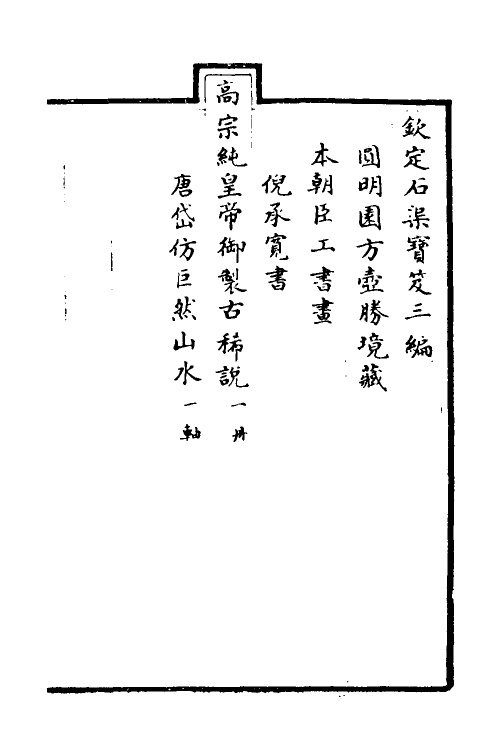 欽定石渠寶笈三編
圓明園方壺勝境藏
本朝臣工書畫
倪承寬書
高宗純皇帝御製古稀說一冊
唐岱仿巨然山水一軸